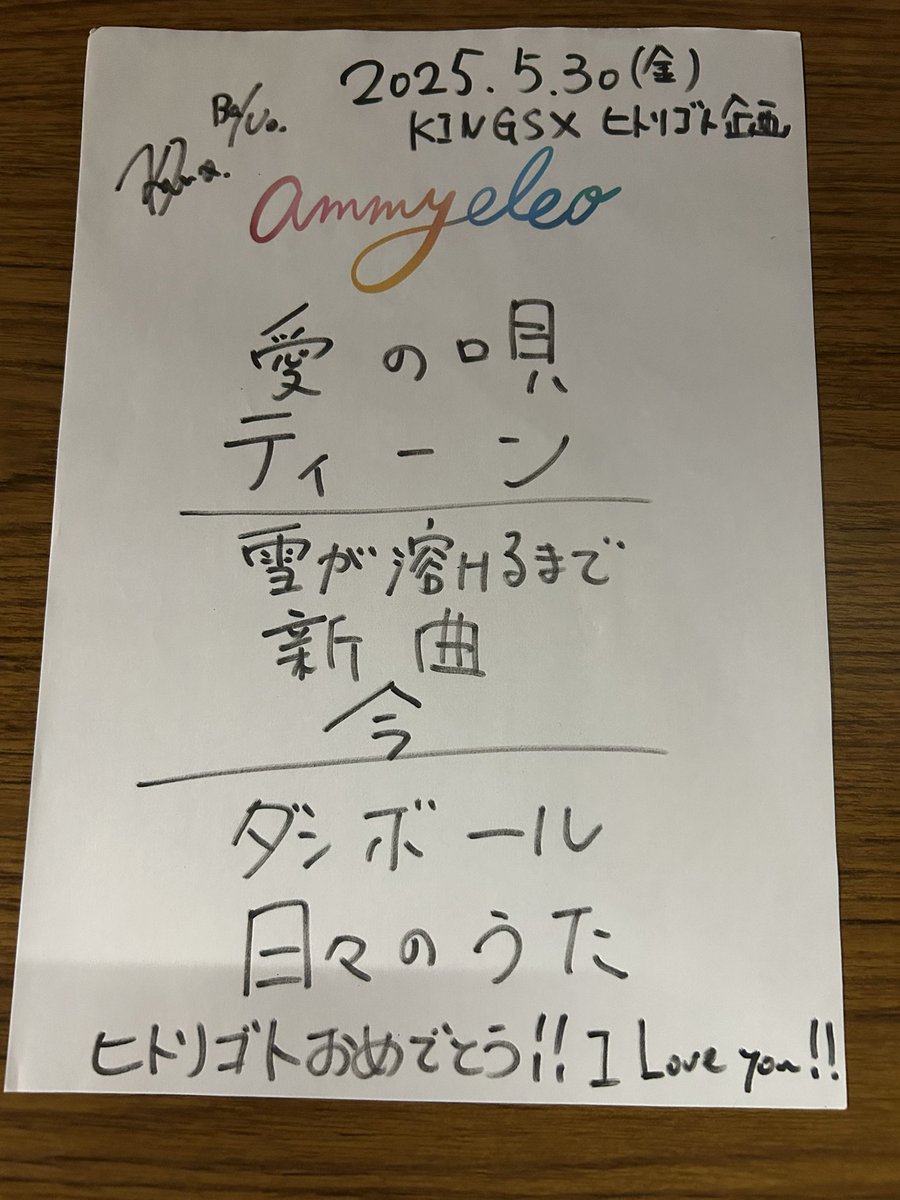 2025.5.30(金)
Ba/Vo.
KINGSX ヒトリゴト企画
ammyeleo
愛の唄
ティーン
雪が溶けるまで
新曲
今
ダンボール
日々のうた
ヒトリゴトおめでとう!! I Love you!!